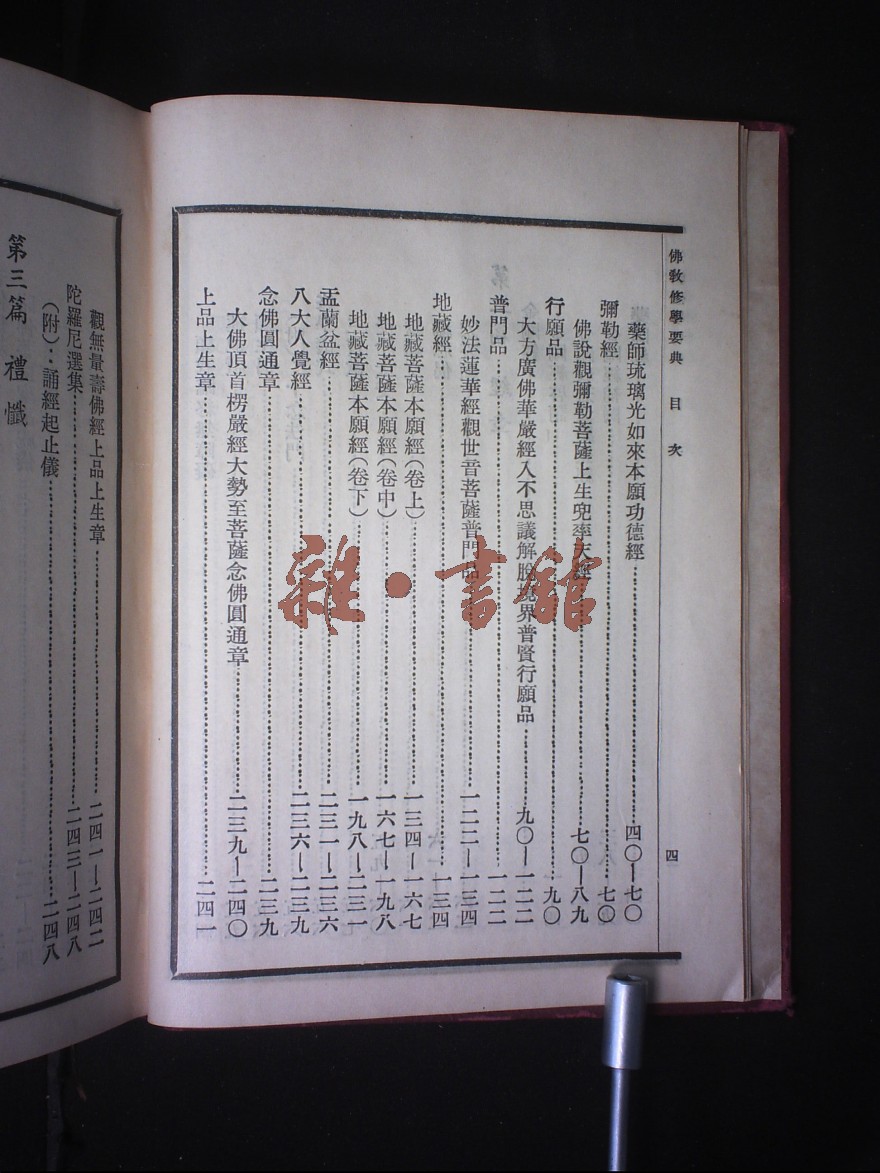 佛教修學要典　目次
四
藥師琉璃光如來本願功德經……四〇—七〇
彌勒經……七〇
佛說觀彌勒菩薩上生兜率天經……七〇—八九
行願品……九〇
大方廣佛華嚴經入不思議解脫境界普賢行願品……九〇—一二二
普門品……一二二
妙法蓮華經觀世音菩薩普門品……一二二—一三四
地藏經……一三四
地藏菩薩本願經（卷上）……一三四—一六七
地藏菩薩本願經（卷中）……一六七—一九八
地藏菩薩本願經（卷下）……一九八—二三一
盂蘭盆經……二三一—二三六
八大人覺經……二三六—二三九
念佛圓通章……二三九
大佛頂首楞嚴經大勢至菩薩念佛圓通章……二三九—二四〇
上品上生章……二四一
觀無量壽佛經上品上生章……二四一—二四二
陀羅尼選集……二四三—二四八
（附）：誦經起止儀……二四八
第三篇　禮懺
雜・書館